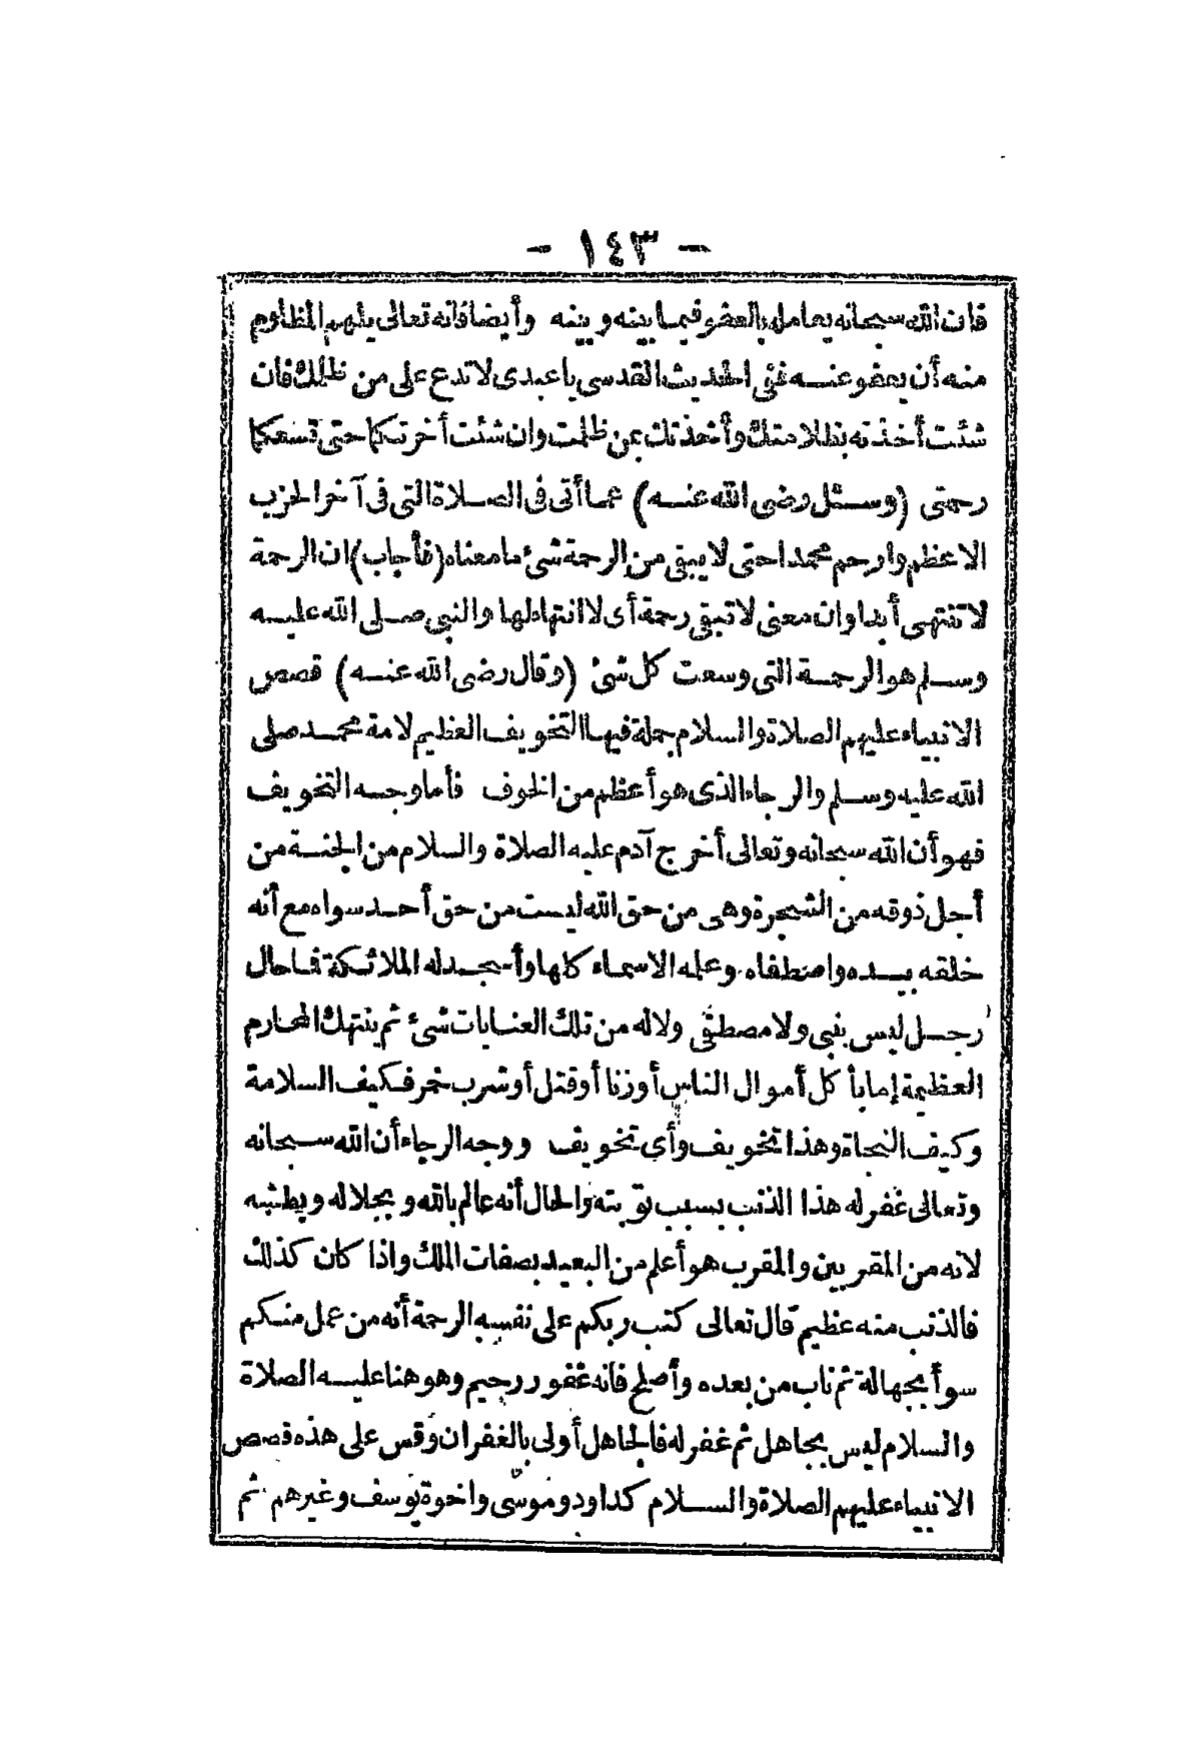 - ١٤٣ -
فان الله سبحانه يعامله بالعفو فيما بينه وبينه وأيضا فانه تعالى يلهم المظلوم
منه أن يعفو عنه ففى الحديث القدسى يا عبدى لا تدع على من ظلمك فان
شئت أخذته بظلامتك وأخذتك بمن ظلمت وان شئت أخرتكما حتى تسعكما
رحمتى (وسئل رضى الله عنه) عما أتى فى الصلاة التى فى آخر الحزب
الاعظم وارحم محمدا حتى لا يبقى من الرحمة شئ ما معناه (فأجاب) ان الرحمة
لا تنتهى أبدا وان معنى لا تبقى رحمة أى لا انتهاء لها والنبى صلى الله عليه
وسلم هو الرحمة التى وسعت كل شئ (وقال رضى الله عنه) قصص
الانبياء عليهم الصلاة والسلام جملة فيها التخويف العظيم لامة محمد صلى
الله عليه وسلم والرجاء الذى هو أعظم من الخوف فأما وجه التخويف
فهو أن الله سبحانه وتعالى أخرج آدم عليه الصلاة والسلام من الجنة من
أجل ذوقه من الشجرة وهى من حق الله ليست من حق أحد سواه مع أنه
خلقه بيده واصطفاه وعلمه الاسماء كلها وأسجد له الملائكة فما حال
رجل ليس بنبى ولا مصطفى ولا له من تلك العنايات شئ ثم ينتهك المحارم
العظيمة إما بأ كل أموال الناس أو زنا أو قتل أو شرب خمر فكيف السلامة
وكيف النجاة وهذا تخويف وأي تخويف ووجه الرجاء أن الله سبحانه
وتعالى غفر له هذا الذنب بسبب توبته والحال أنه عالم بالله وبجلاله وبطشه
لانه من المقربين والمقرب هو أعلم من البعيد بصفات الملك واذا كان كذلك
فالذنب منه عظيم قال تعالى كتب ربكم على نفسه الرحمة أنه من عمل منكم
سوأ بجهالة ثم تاب من بعده وأصلح فانه غفور رحيم وهو هنا عليه الصلاة
والسلام ليس بجاهل ثم غفر له فالجاهل أولى بالغفران وقس على هذه قصص
الانبياء عليهم الصلاة والسلام كداود وموسى واخوة يوسف وغيرهم ثم